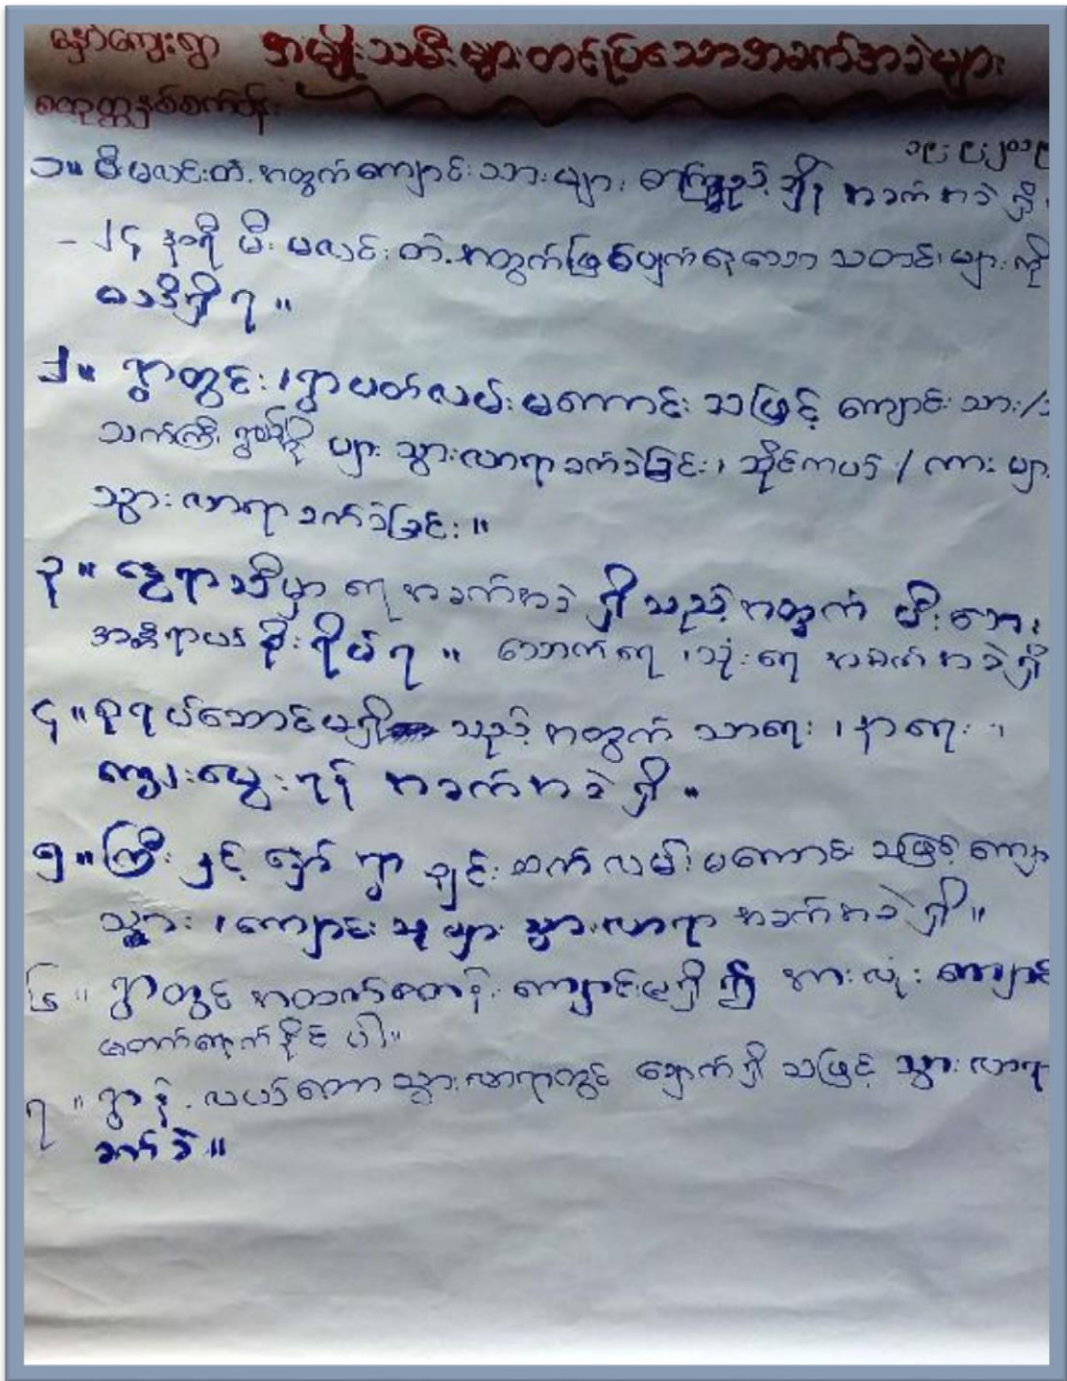 နှော်ကျေးရွာ အမျိုးသမီးများတင်ပြသောအခက်အခဲများ
၁၉.၉.၂၀၁၉
၁။ မီးမလင်းတဲ့အတွက်ကျောင်းသားများ အခက်အခဲရှိ
- ၂၄ နာရီ မီး မလင်းတဲ့အတွက်ဖြစ်ပျက်နေသော သတင်းများကို
မသိရှိရ။
၂။ ရွာတွင်း၊ရွာပတ်လမ်းမကောင်းသဖြင့် ကျောင်းသား/
သက်ကြီးရွယ်အိုများ သွားလာရာခက်ခဲခြင်း၊ ဆိုင်ကယ်/ကားမျာ
သွားလာရာခက်ခဲခြင်း။
၃။ နွေရာသီမှာ ရေအခက်အခဲရှိသည့်အတွက် မီးဘေး
အန္တီရာယ်စိုးရိမ်ရ။ သောက်ရေ၊သုံးရေ အခက်အခဲရှိ
၄။ စုရပ်ဆောင်မရှိသည့်အတွက် သာရေး၊နာရေး၊
ကျွေးမွေးရန် အခက်အခဲရှိ။
၅။ ကြီး နှင့် နှော် ရွာချင်းဆက်လမ်းမကောင်းသဖြင့် ကျော
သွား၊ကျောင်းသူများ သွားလာရာ အခက်အခဲရှိ။
၆။ ရွာတွင် အထက်တန်းကျောင်းမရှိ၍ အားလုံးကျောင်
မတက်ရောက်နိုင်ပါ။
၇။ ရွာနှင့် လယ်တောသွားလာရာတွင် ချောက်ရှိသဖြင့် သွားလာရာ
ခက်ခဲ။